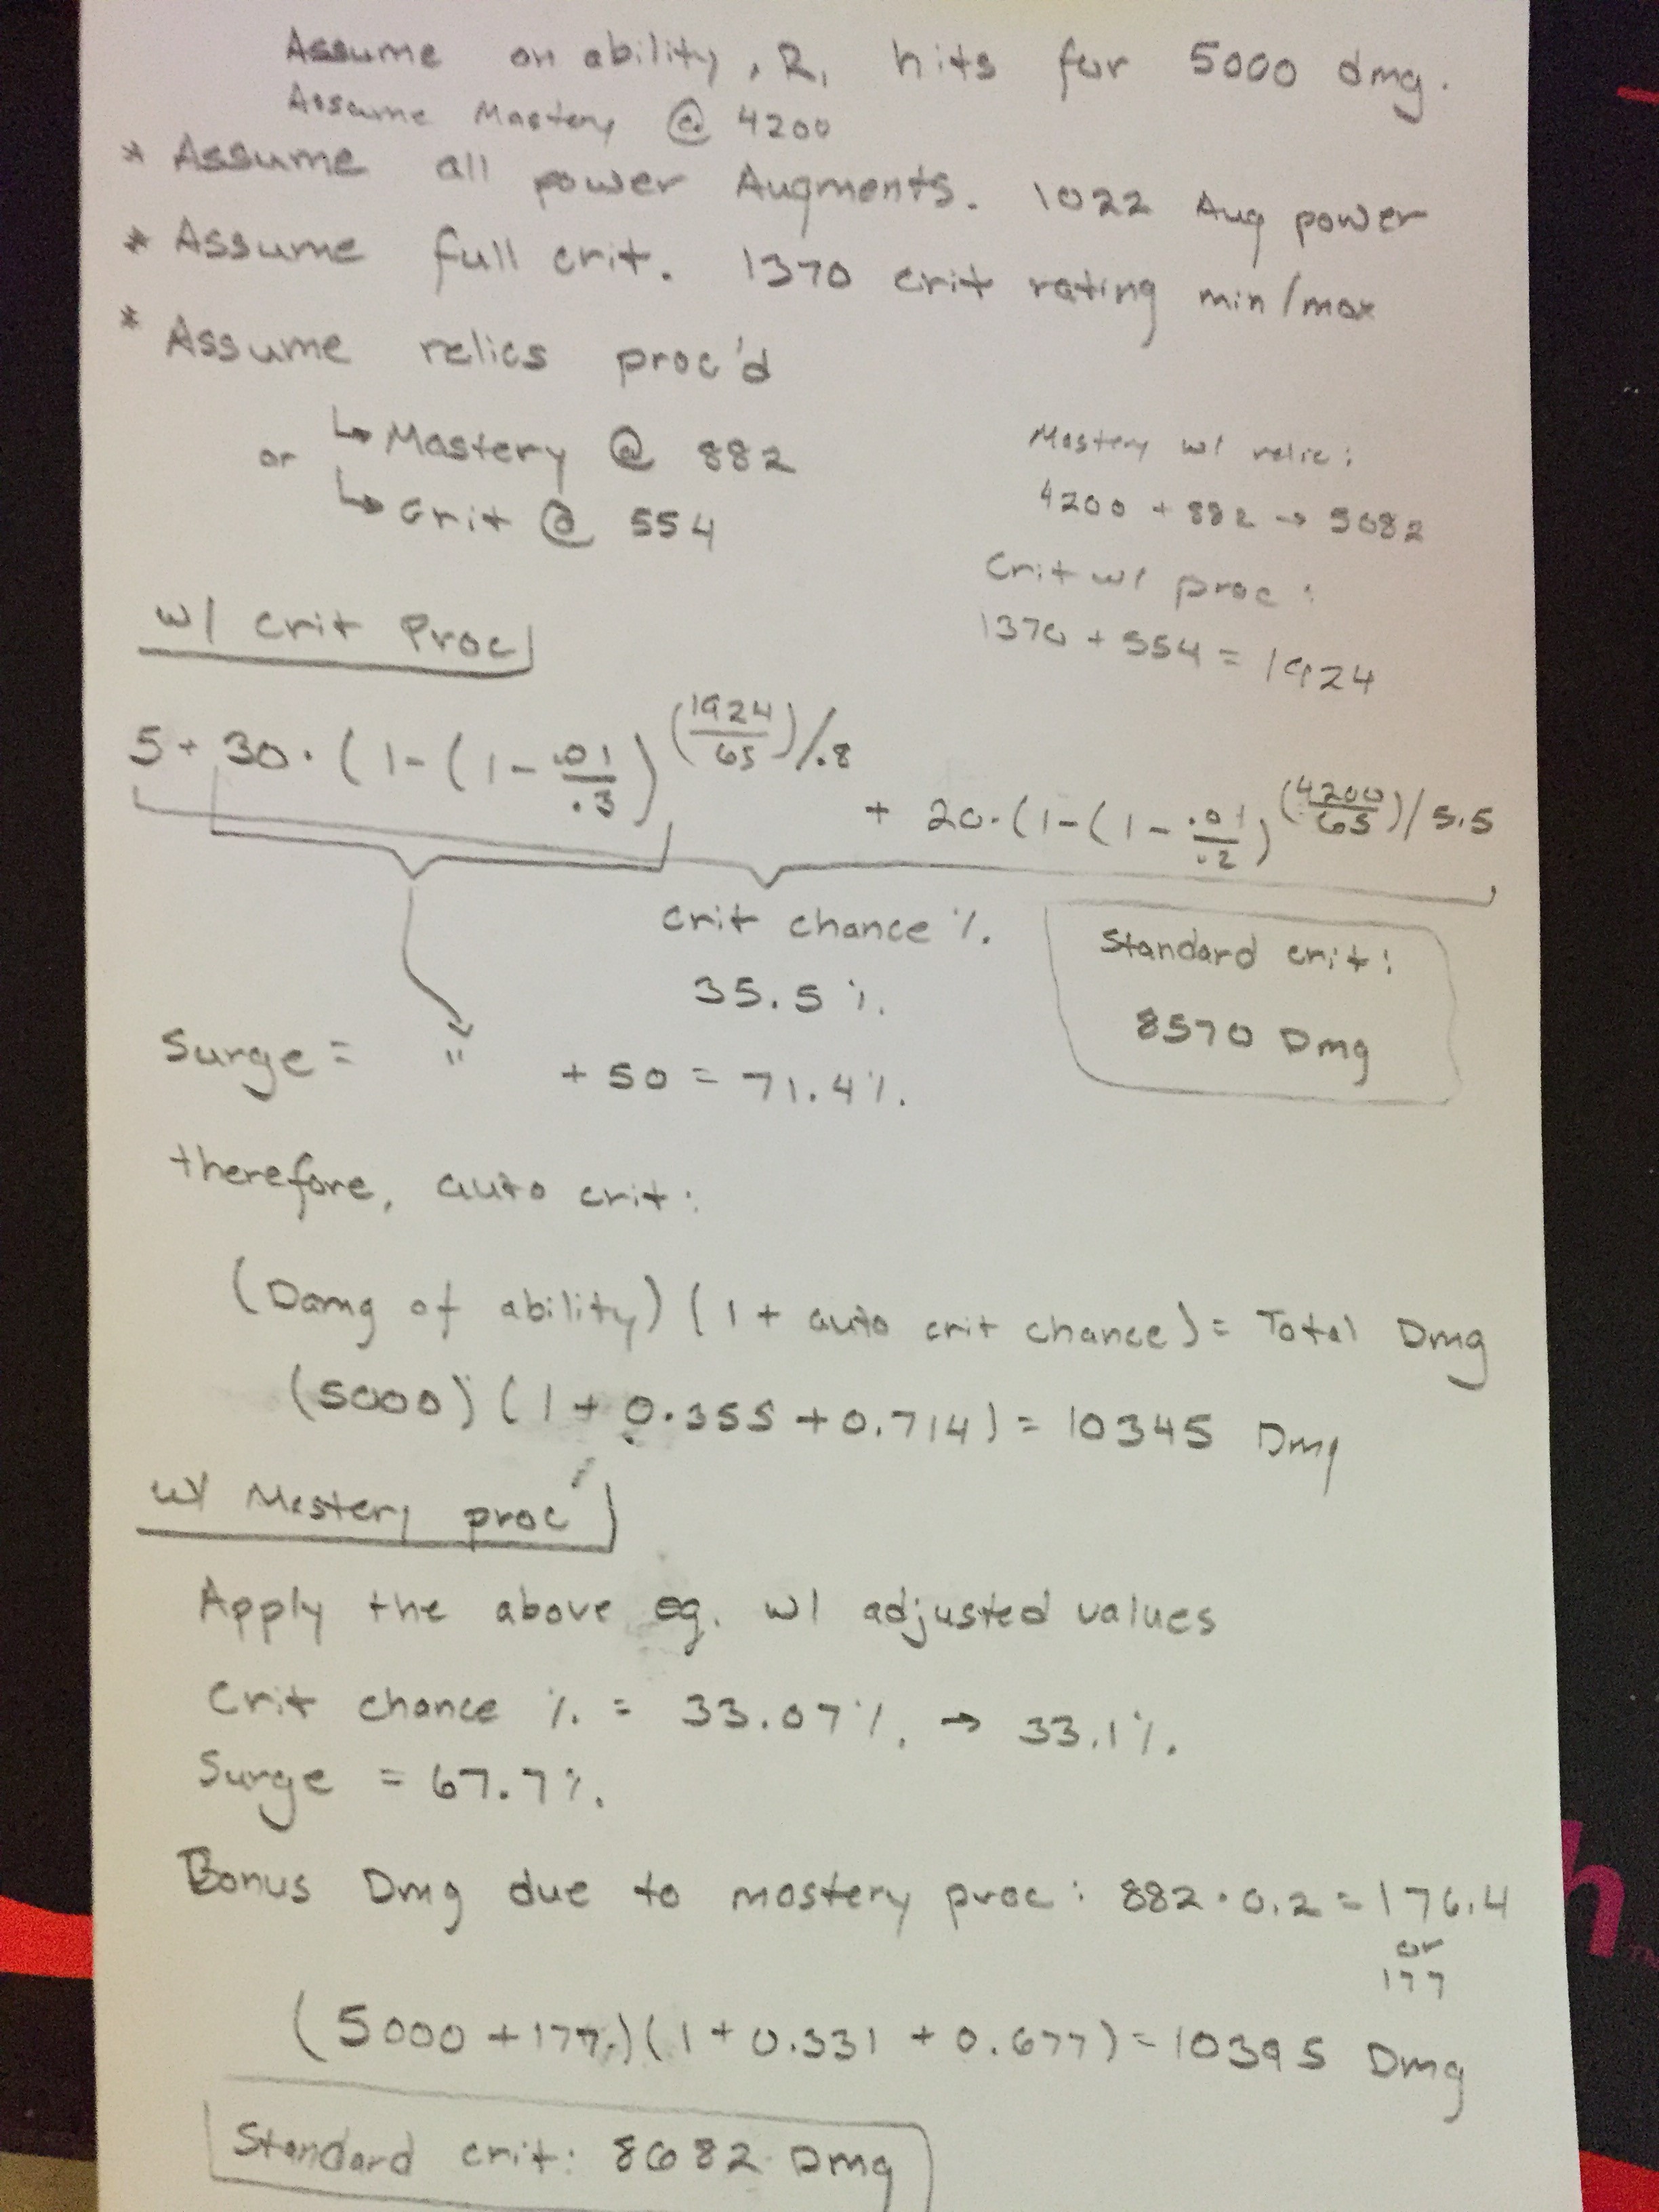 Assume an ability, R, hits for 5000 dmg.
Assume Mastery @ 4200
* Assume all power Augments. 1022 Aug power
* Assume full crit. 1370 crit rating min/max
* Assume relics proc'd
↳ Mastery @ 882
or
↳ Crit @ 554
Mastery w/ relic:
4200 + 882 → 5082
Crit w/ proc:
1370 + 554 = 1924
w/ crit Proc
5 + 30 · (1 - (1 - .01/.3)^(1924/65)/.8
+ 20 · (1 - (1 - .01/.2)^(4200/65)/5.5
Crit chance %.
35.5 %.
Standard crit:
8570 Dmg
Surge = " + 50 = 71.4%.
therefore, auto crit:
(Damg of ability) (1 + auto crit chance) = Total Dmg
(5000) (1 + 0.355 + 0.714) = 10345 Dmg
w/ Mastery proc
Apply the above eq. w/ adjusted values
Crit chance %. = 33.07%. → 33.1%.
Surge = 67.7%.
Bonus Dmg due to mastery proc: 882 · 0.2 = 176.4
or
177
(5000 + 177.) (1 + 0.331 + 0.677) = 10395 Dmg
Standard crit: 8682 Dmg
h